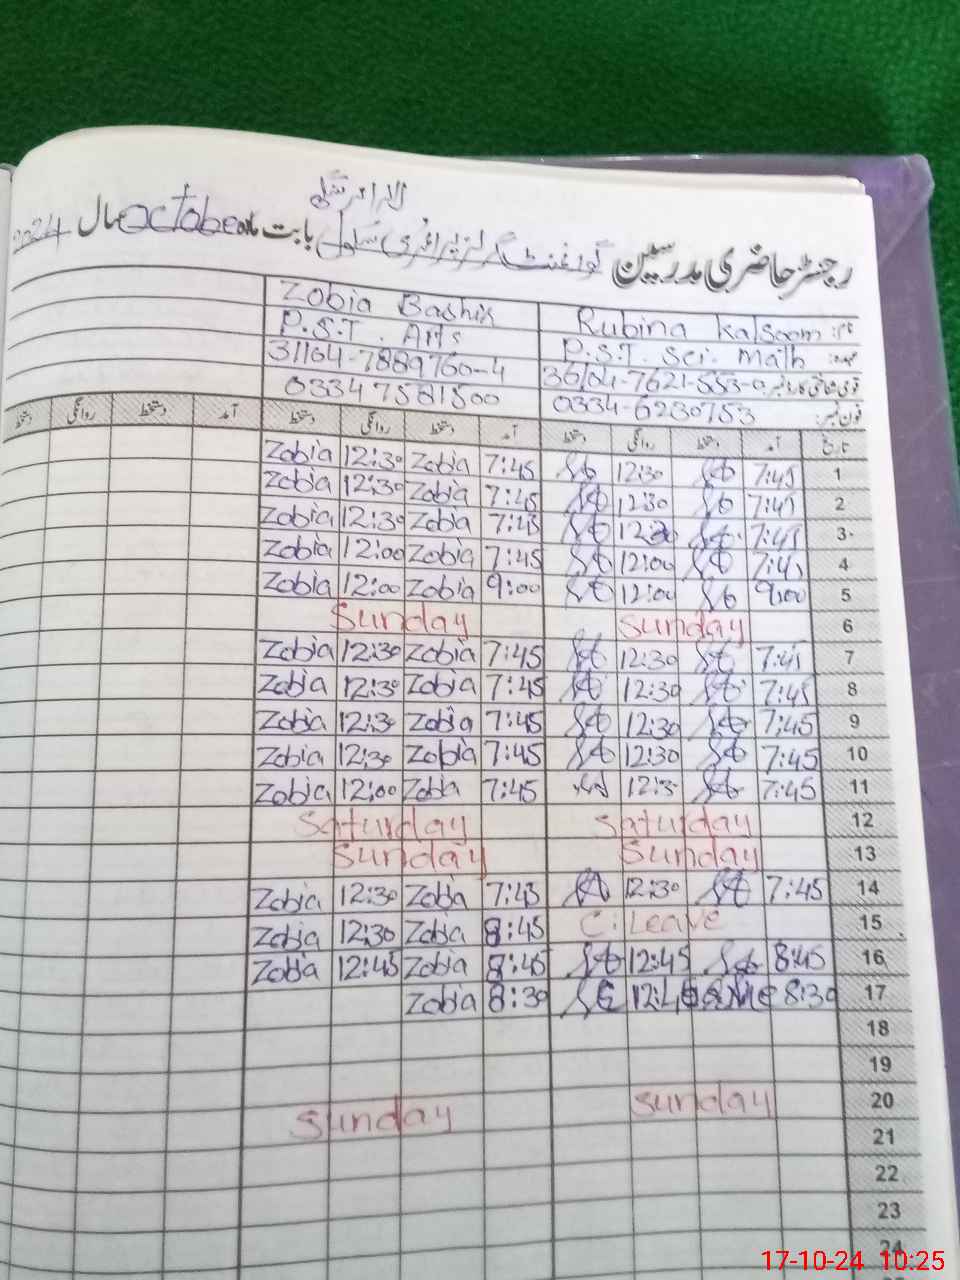 رجسٹر حاضری مدرسین گورنمنٹ گرلز پرائمری سکول بابت ماہ October سال 2024
نام: Rubina Kalsoom Zobia Bashir
عہدہ: P.S.T. Sci. Math P.S.T. Arts
قومی شناختی کارڈ نمبر: 36104-7621-553-0 31164-7889760-4
فون نمبر: 0334-6230753 0334 7581500
تاریخ آمد دستخط روانگی دستخط آمد دستخط روانگی دستخط آمد دستخط روانگی دستخط
1 7:45 12:30 7:45 Zobia 12:30 Zobia
2 7:45 12:30 7:45 Zobia 12:30 Zobia
3 7:45 12:30 7:45 Zobia 12:30 Zobia
4 7:45 12:00 7:45 Zobia 12:00 Zobia
5 9:00 12:00 9:00 Zobia 12:00 Zobia
6 Sunday Sunday
7 7:45 12:30 7:45 Zobia 12:30 Zobia
8 7:45 12:30 7:45 Zobia 12:30 Zobia
9 7:45 12:30 7:45 Zobia 12:30 Zobia
10 7:45 12:30 7:45 Zobia 12:30 Zobia
11 7:45 7:45 Zobia 12:00 Zobia
12 Saturday Saturday
13 Sunday Sunday
14 7:45 12:30 7:45 Zobia 12:30 Zobia
15 C.Leave 8:45 Zobia 12:30 Zobia
16 8:45 12:45 8:45 Zobia 12:45 Zobia
17 8:30 8:30 Zobia
18
19
20 Sunday Sunday
21
22
23
24
17-10-24 10:25